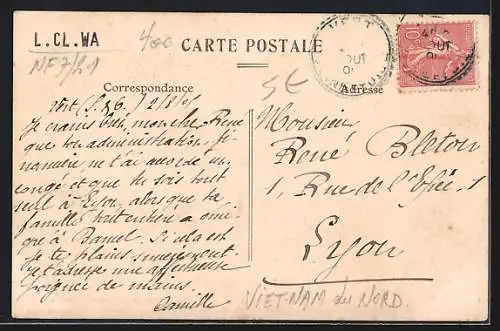 L.CL.WA
400
NF7/21
CARTE POSTALE
5€
Correspondance
Adresse
VERT
Vert (S. & O.) 2/8/
Je crains bien, mon cher René
que ton administration,
ne t'ai accordé un
congé et que tu sois tout
seul à Lyon, alors que ta
famille tout entière a
à Bamel. Si cela est
je te plains sincèrement
et t'adresse une affectueuse
poignée de mains.
Camille
Monsieur
René Bleton
1, Rue de l'Épée, 1
Lyon
VIET-NAM du NORD.